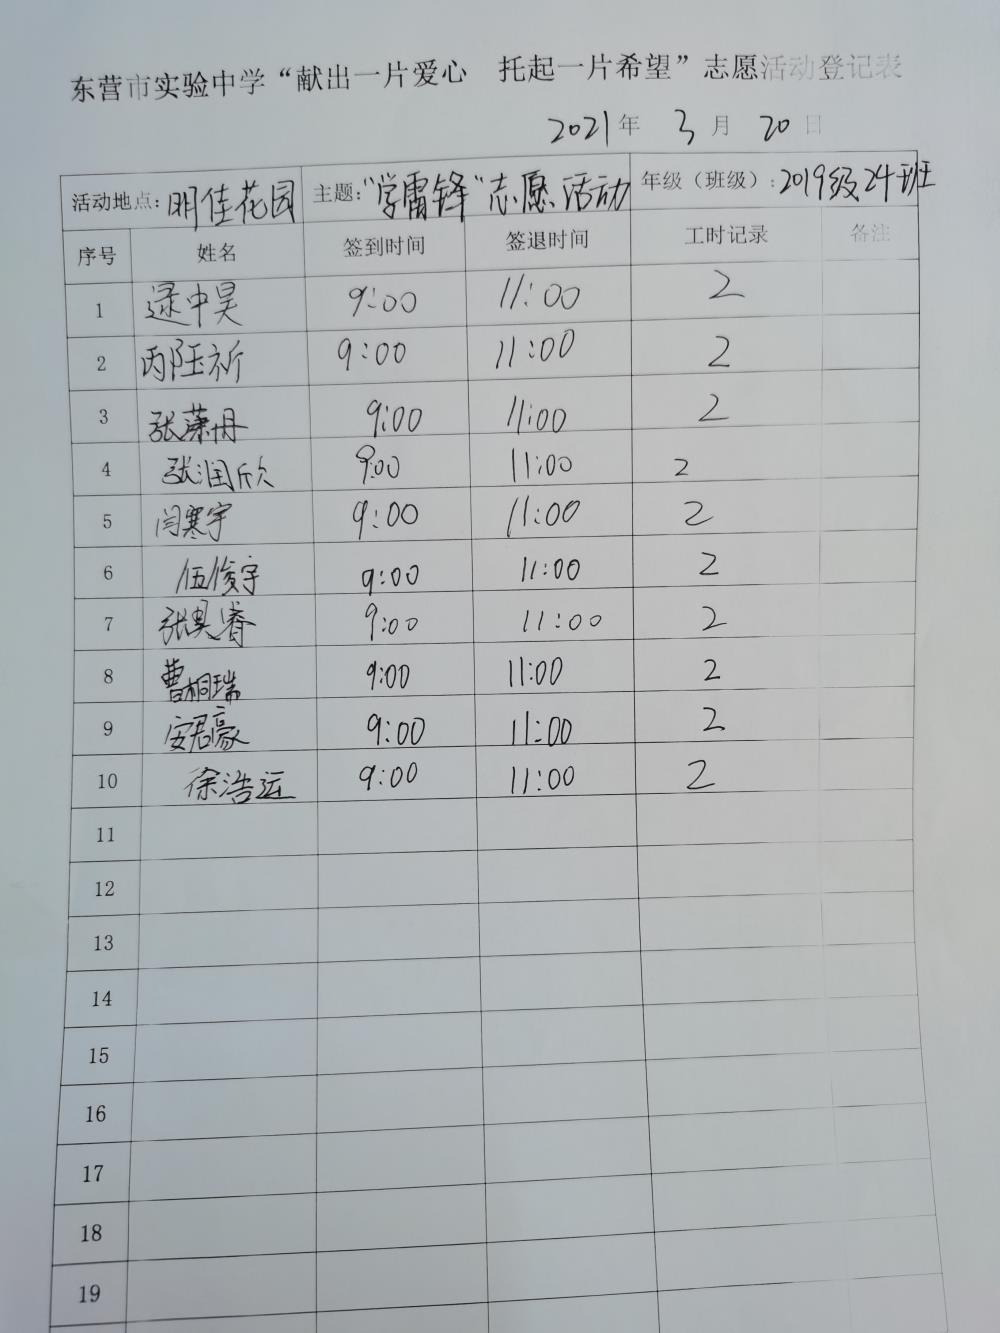 东营市实验中学“献出一片爱心 托起一片希望”志愿活动登记表
2021年 3月 20日
活动地点：明佳花园 主题：“学雷锋”志愿活动 年级（班级）：2019级24班
序号 姓名 签到时间 签退时间 工时记录 备注
1 逯中昊 9:00 11:00 2
2 9:00 11:00 2
3 9:00 11:00 2
4 张润欣 9:00 11:00 2
5 闫寒宇 9:00 11:00 2
6 伍俊宇 9:00 11:00 2
7 张昊睿 9:00 11:00 2
8 曹桐瑞 9:00 11:00 2
9 安君豪 9:00 11:00 2
10 徐浩运 9:00 11:00 2
11
12
13
14
15
16
17
18
19